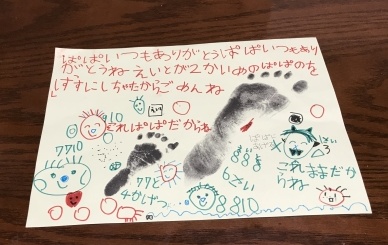 ぱぱいつもありがとうぱぱいつもあり
がとうねえいとが2かいめのぱぱのち
しすすにしちゃたからごめんね
これぱぱだからね
7710
10
77と
4かげつ
88
6さい
8810
さい
3
これままだか
らね